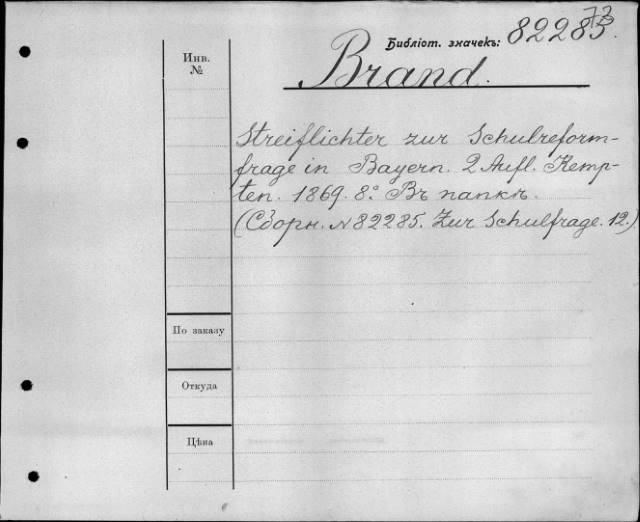 73
Библіот. значекъ: 82285.
Инв. №
Brand.
Streiflichter zur Schulreform-
frage in Bayern. 2 Aufl. Kemp-
ten. 1869. 8.° Въ папкѣ.
(Сборн. № 82285. Zur Schulfrage. 12.)
По заказу
Откуда
Цѣна